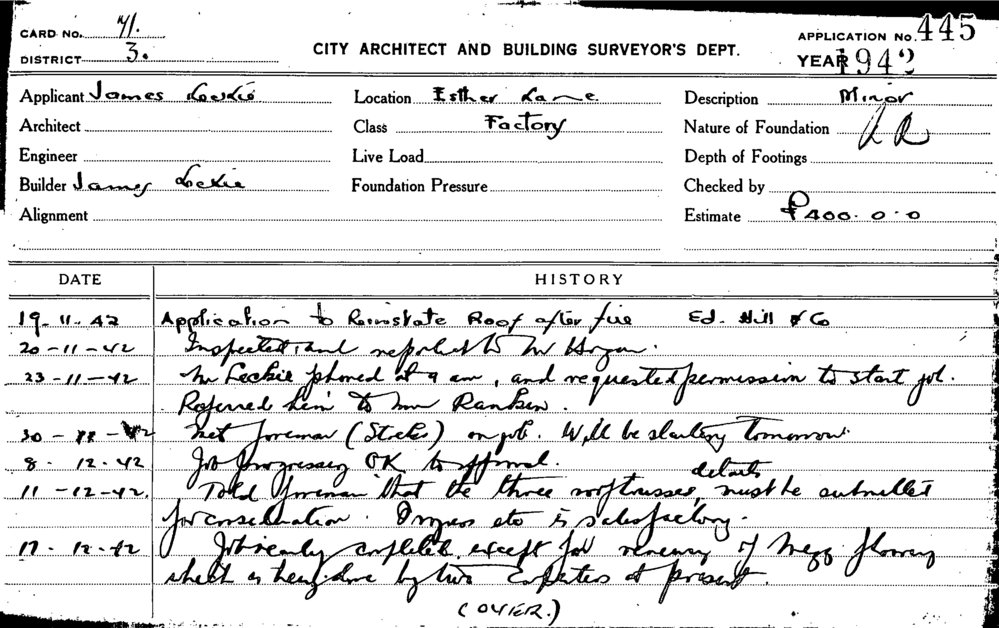 CARD No. 71.
DISTRICT 3.
CITY ARCHITECT AND BUILDING SURVEYOR'S DEPT.
APPLICATION No. 445
YEAR 1942
Applicant James Leckie Location Esther Lane Description Minor
Architect Class Factory Nature of Foundation
Engineer Live Load Depth of Footings
Builder James Leckie Foundation Pressure Checked by
Alignment Estimate £400.0.0
DATE HISTORY
19.11.42 Application to Reinstate Roof after fire Ed. Hill & Co
20-11-42 Inspected and reported to Mr Hogan.
23-11-42 Mr Leckie phoned at 9 am, and requested permission to start job.
Referred him to Mr Ranken.
30-11-42 Met foreman (Stokes) on job. Will be starting tomorrow.
8. 12.42 Job progressing OK to approval.
details
11-12-42. Told foreman that the three roof trusses, must be submitted
for consideration. Progress etc is satisfactory.
17. 12.42 Job nearly completed except for renewing of Mezz flooring
which is being done by two Carpenters at present.
(OVER.)